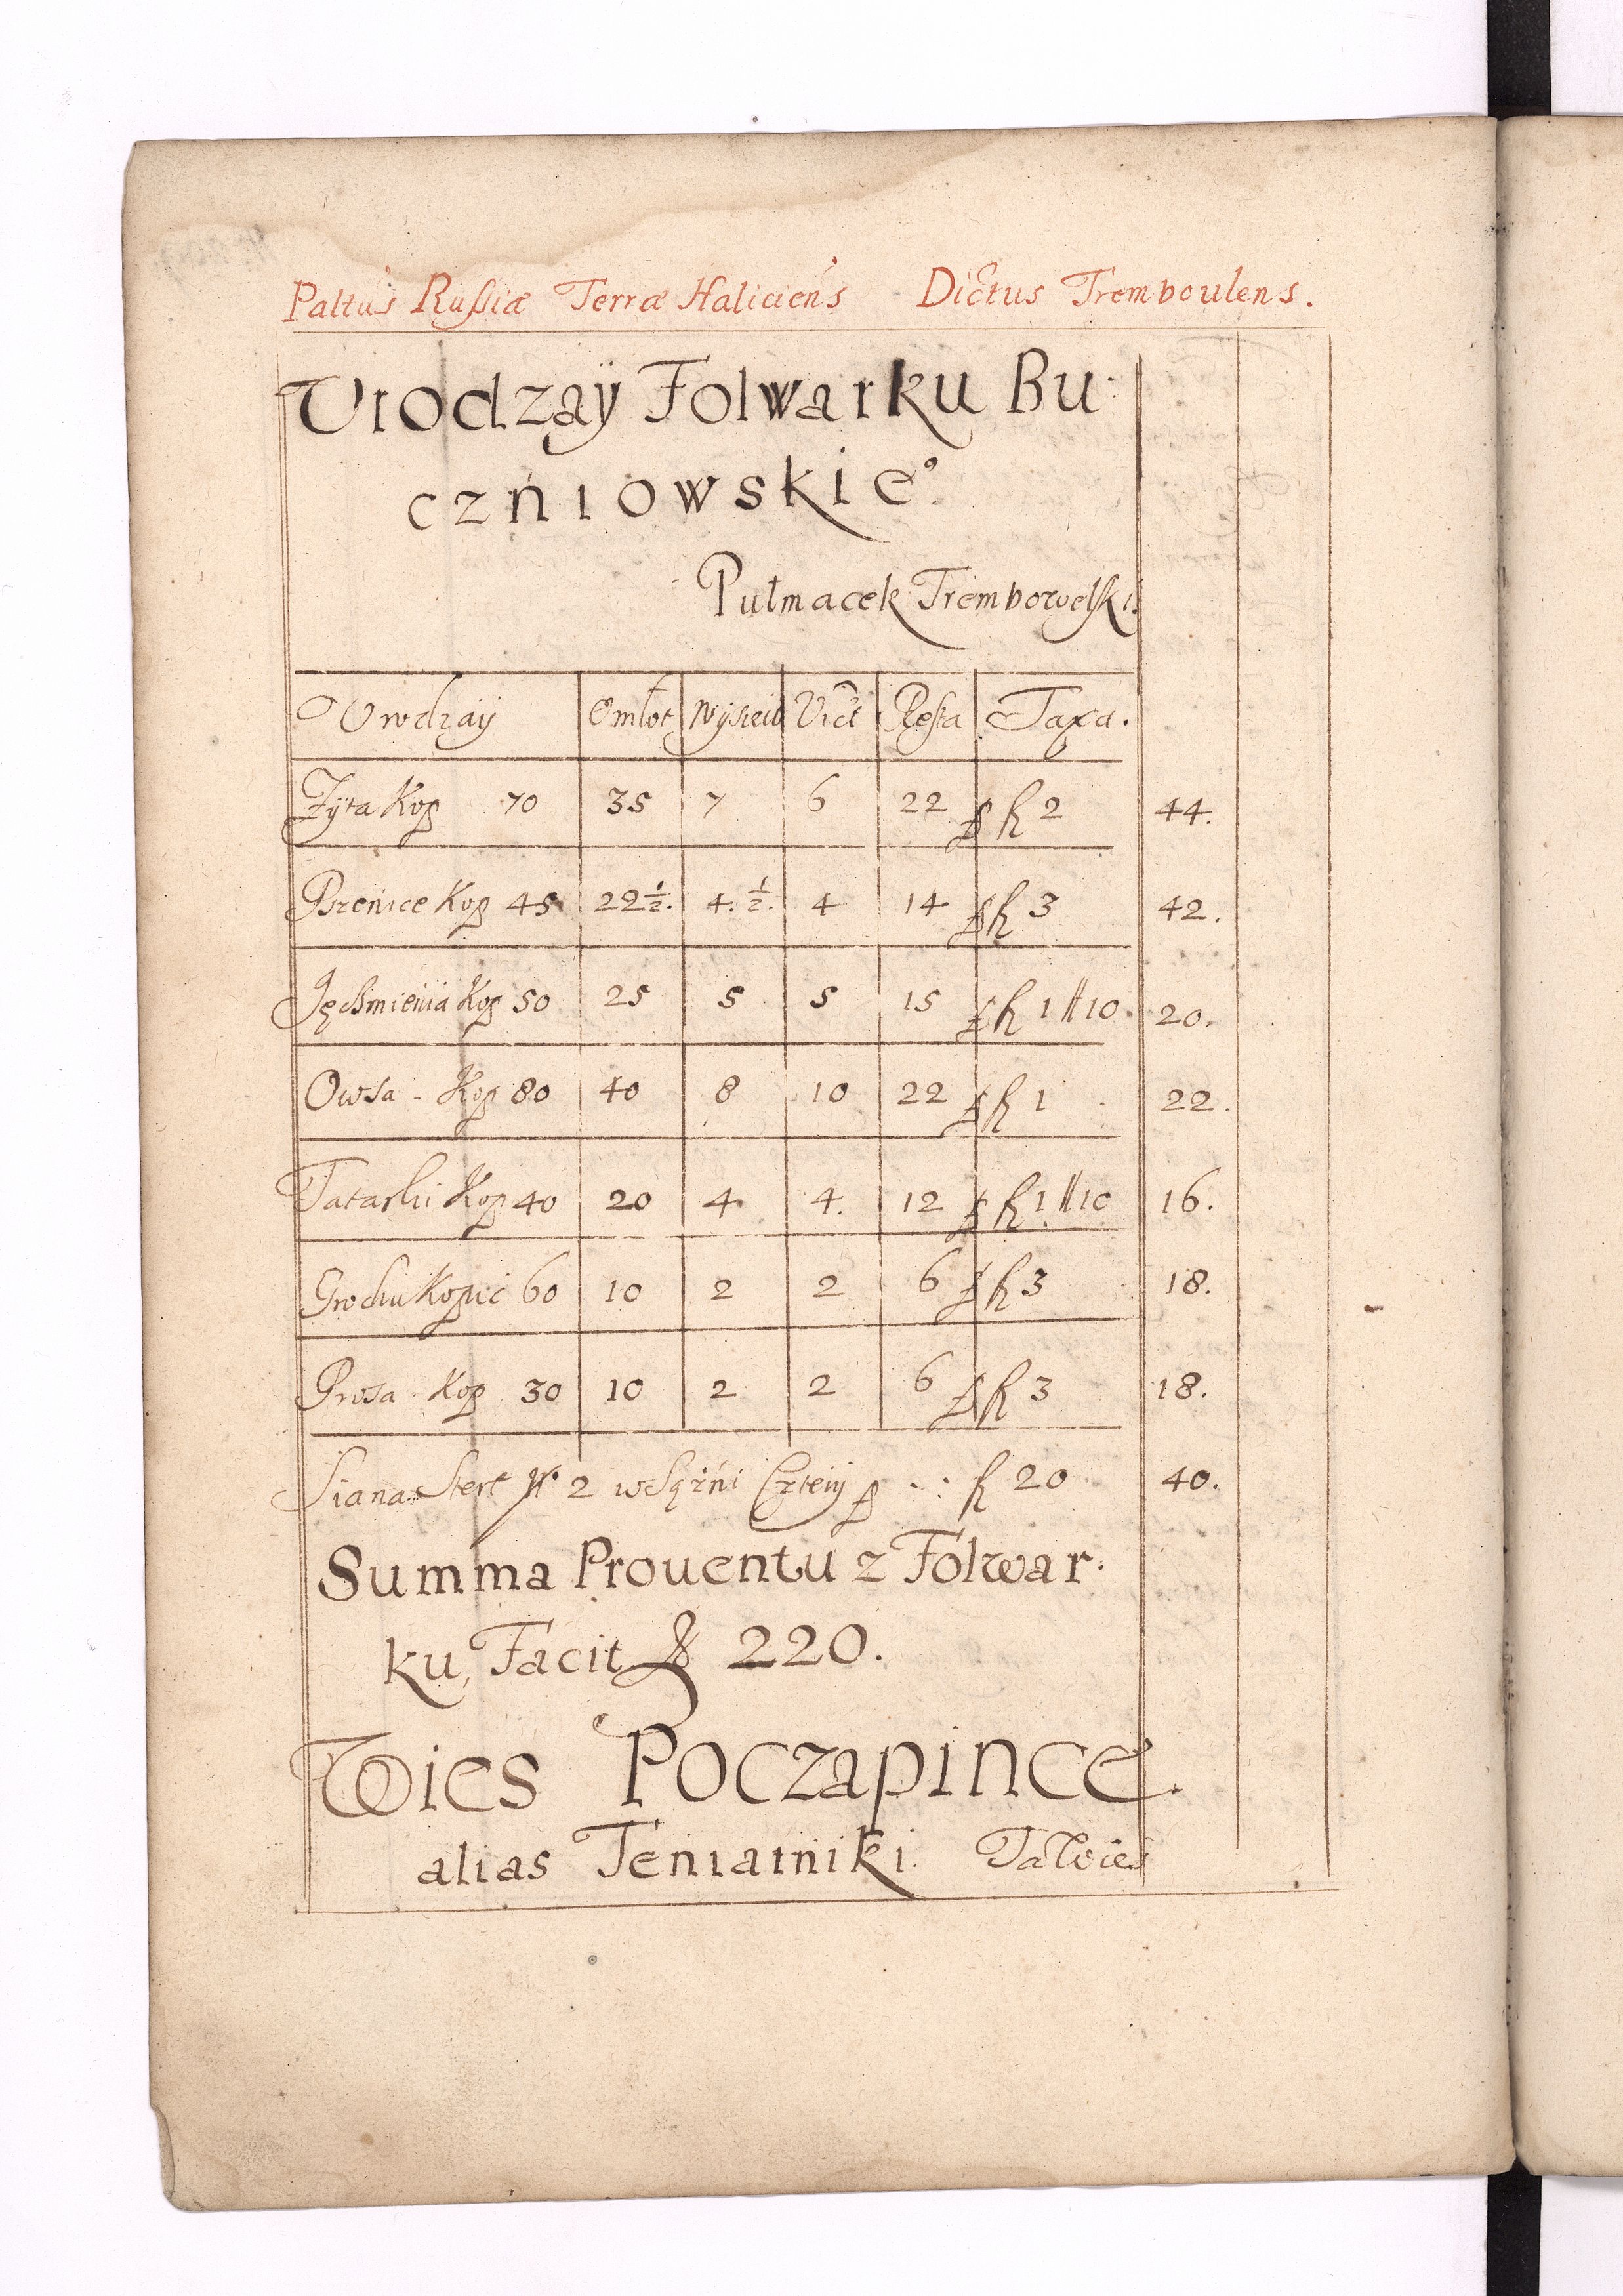 Paltus Rußiæ Terræ Haliciens Dictus Tremboulens.
Urodzaÿ Folwarku Bu
czniowskie°
Pułmacek Trembowelski
Urodzaÿ Omłot Wysiew Vict Resta Taxa.
Zÿta Kop 70 35 7 6 22 p fl 2 44.
Pszenice Kop 45 22 1/2. 4. 1/2. 4 14 p fl 3 42.
Jęchmienia Kop 50 25 5 5 15 p fl 1 // 10. 20.
Owsa - Kop 80 40 8 10 22 p fl 1 22.
Tatarki Kop 40 20 4 4. 12 p fl 1 // 10 16.
Grochu Kopic 60 10 2 2 6 p fl 3 18.
Prosa Kop 30 10 2 2 6 p fl 3 18.
Siana Stert Nr 2 w Sążni p fl 20 40.
Summa Prouentu z Folwar
ku, Facit fl 220.
Wies Poczapince
alias Teniatniki. Ta Wies